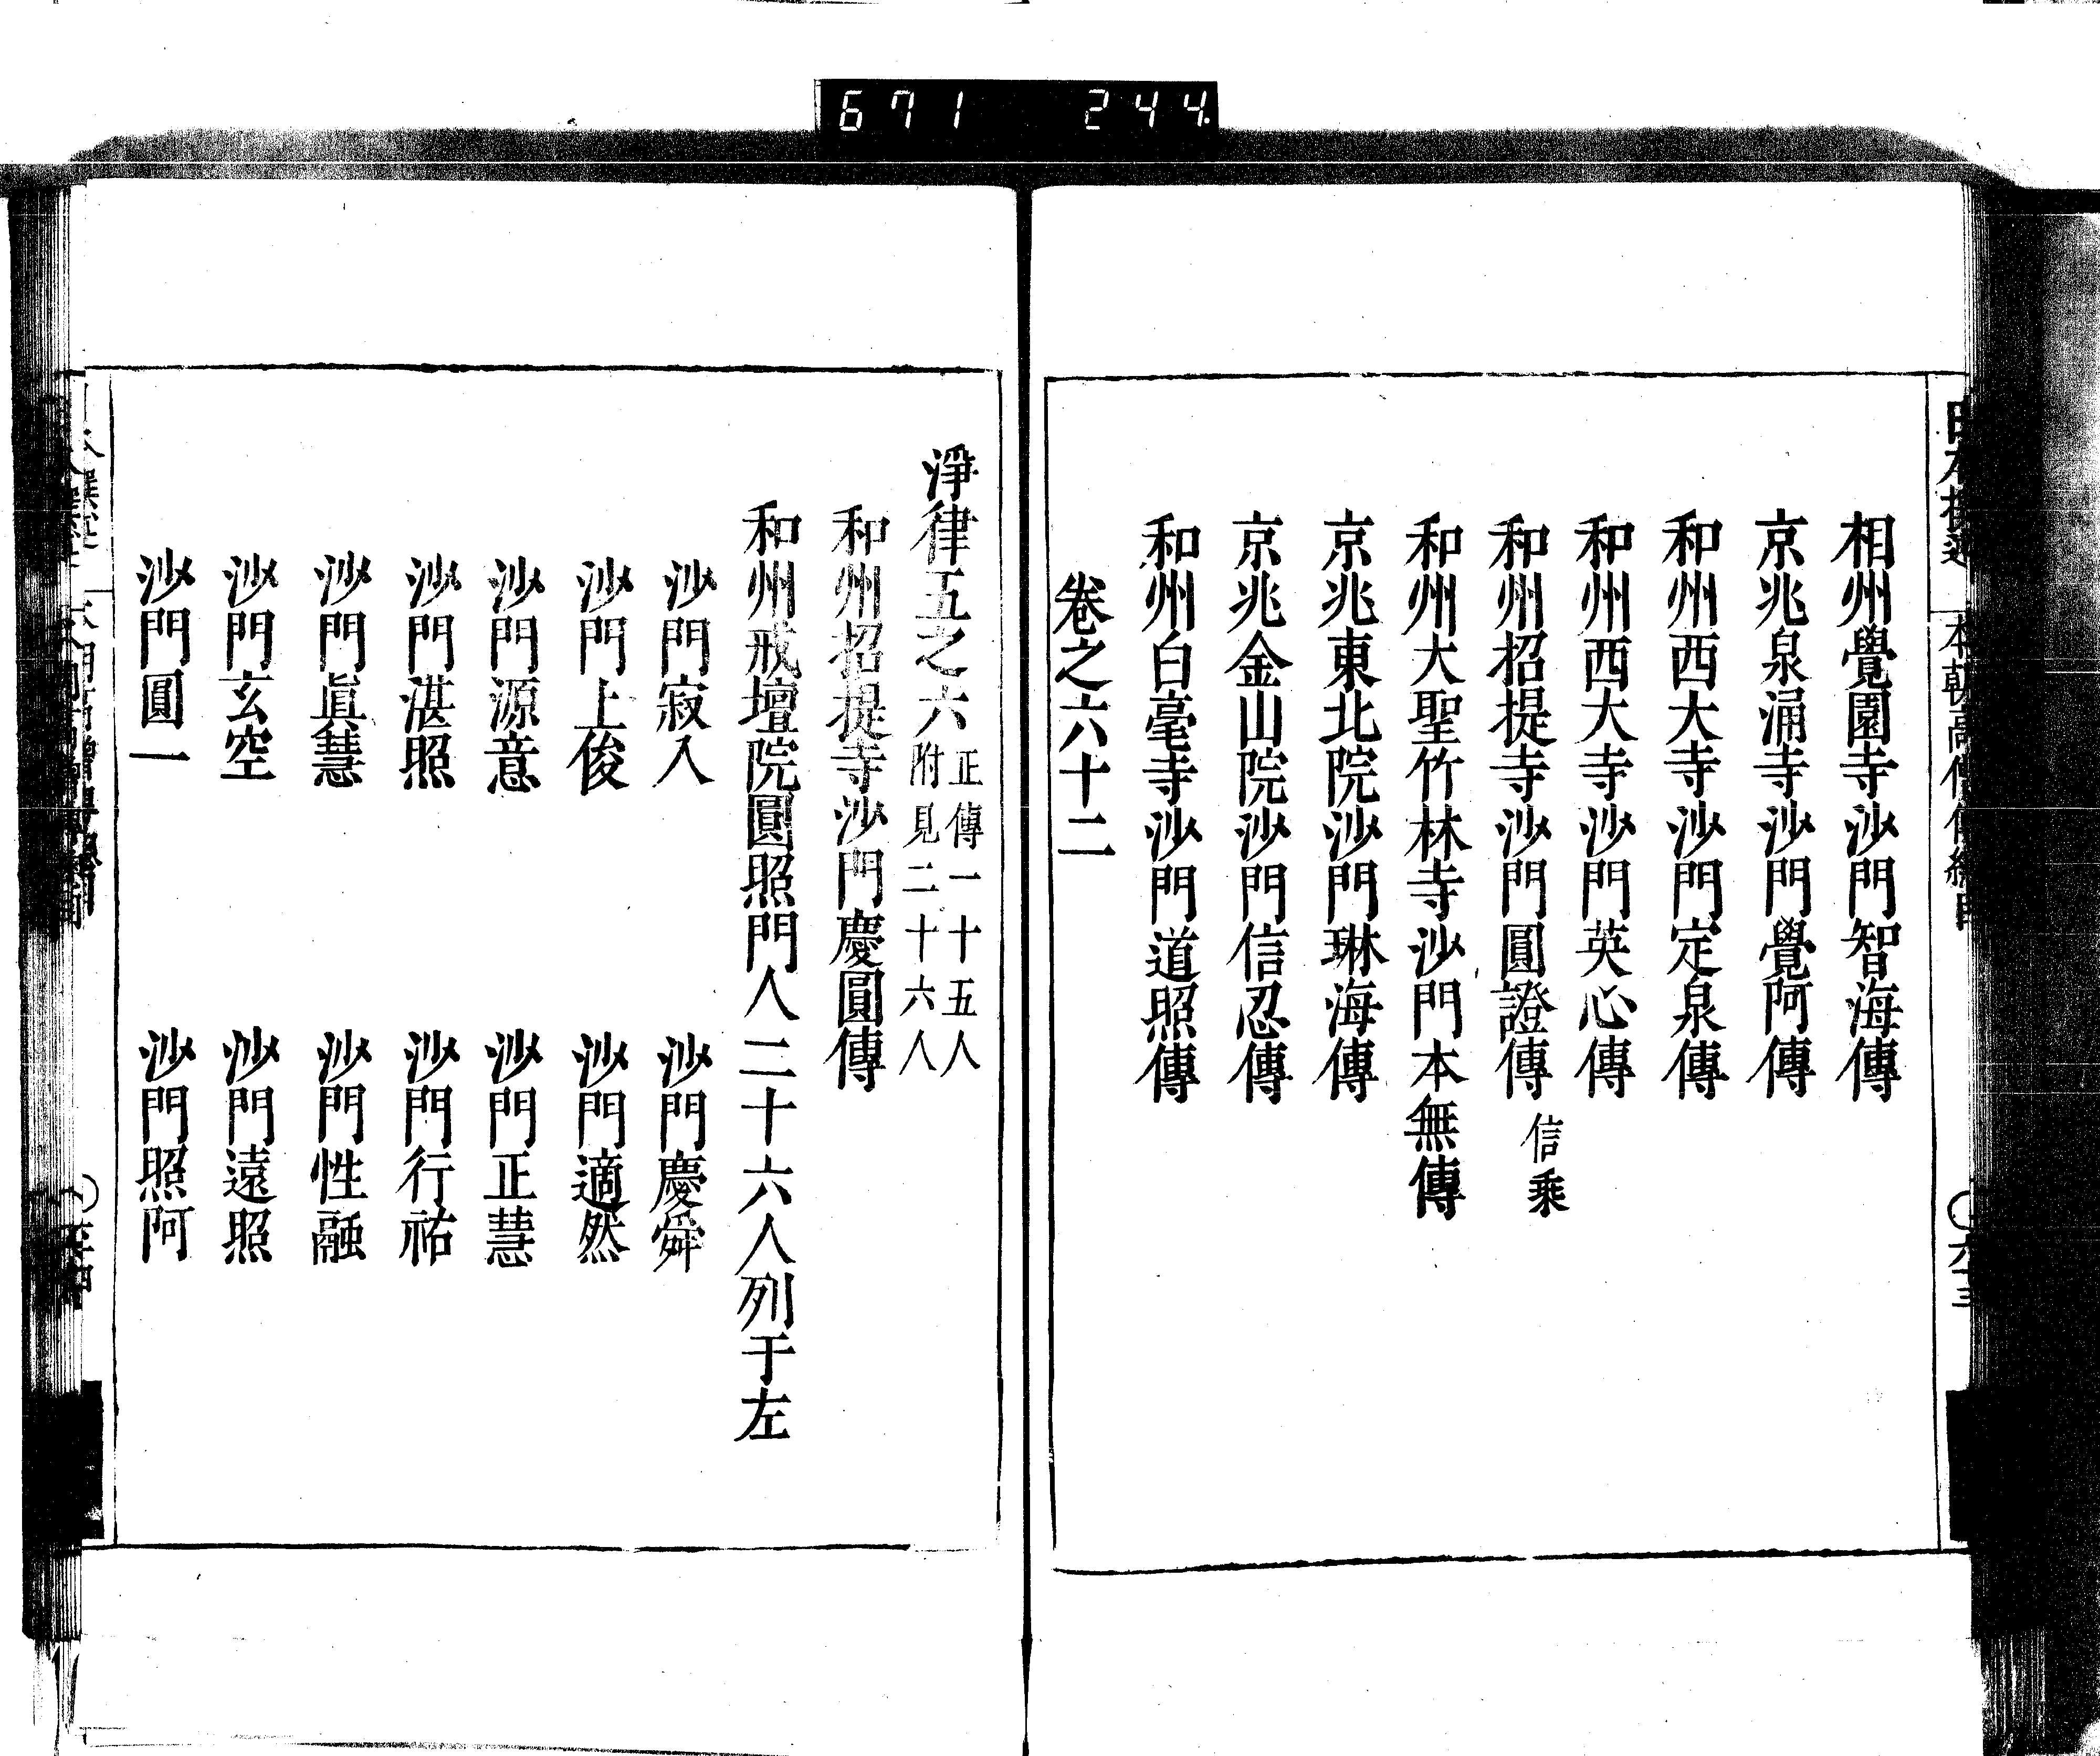 671 244
相州覺園寺沙門智海傳
京兆泉涌寺沙門覺阿傳
和州西大寺沙門定泉傳
和州西大寺沙門英心傳
和州招提寺沙門圓證傳 信乘
和州大聖竹林寺沙門本無傳
京兆東北院沙門琳海傳
京兆金山院沙門信忍傳
和州白毫寺沙門道照傳
卷之六十二
淨律五之六 正傳一十五人
附見二十六人
和州招提寺沙門慶圓傳
和州戒壇院圓照門人二十六人列于左
沙門寂入 沙門慶舜
沙門上俊 沙門適然
沙門源意 沙門正慧
沙門湛照 沙門行祐
沙門眞慧 沙門性融
沙門玄空 沙門遠照
沙門圓一 沙門照阿